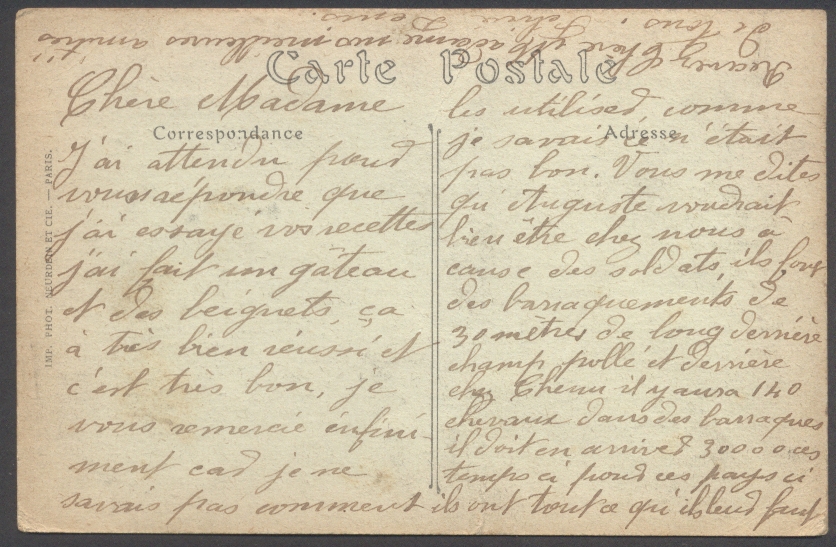 Carte Postale
Correspondance
Adresse
IMP. PHOT. NEURDEIN ET CIE. — PARIS.
Chère Madame
J'ai attendu pour
vous répondre que
j'ai essayé vos recettes
j'ai fait un gâteau
et des beignets, ça
à très bien réussi et
c'est très bon, je
vous remercie infini-
ment car je ne
savais pas comment
les utiliser, comme
je savais ce n'était
pas bon. Vous me dites
qu'Auguste voudrait
bien être chez nous à
cause des soldats, ils font
des barraquements de
30 mètres de long derrière
champ pollé et derrière
chez Chenu il y aura 140
chevaux dans des barraques
il doit en arriver 30000 ces
temps ci pour ces pays ci
ils ont tout ce qu'ils leur faut
Recevez Chère Madame nos meilleures amitiés
de tous.